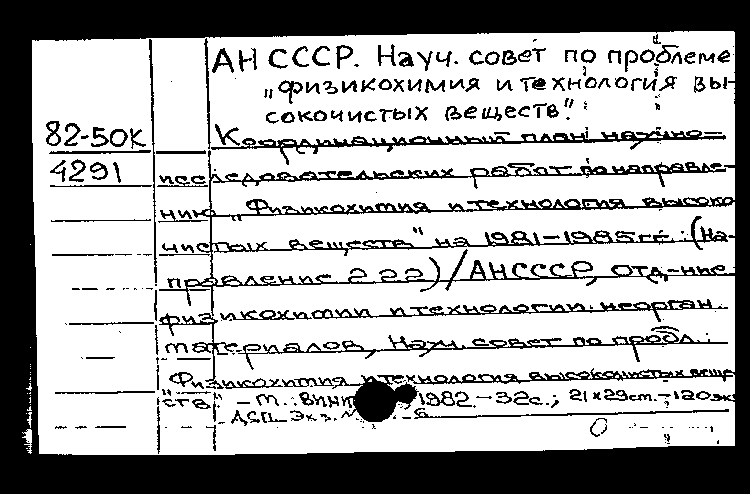 АН СССР. Науч. совет по проблеме
„физикохимия и технология вы-
сокочистых веществ".
82-50К Координационный план научно-
4291 исследовательских работ по направле-
нию „Физикохимия и технология высоко
чистых веществ" на 1981-1985 гг.: (На-
правление 2 2 2) / АН СССР, Отд-ние
физикохимии и технологии неорган.
материалов, Науч. совет по пробл.:
„Физикохимия и технология высокочистых веще
ств." - М.: ВИНИ 1982. - 32 с.; 21 х 29 см. - 120 экз
ДСП Экз. № 6